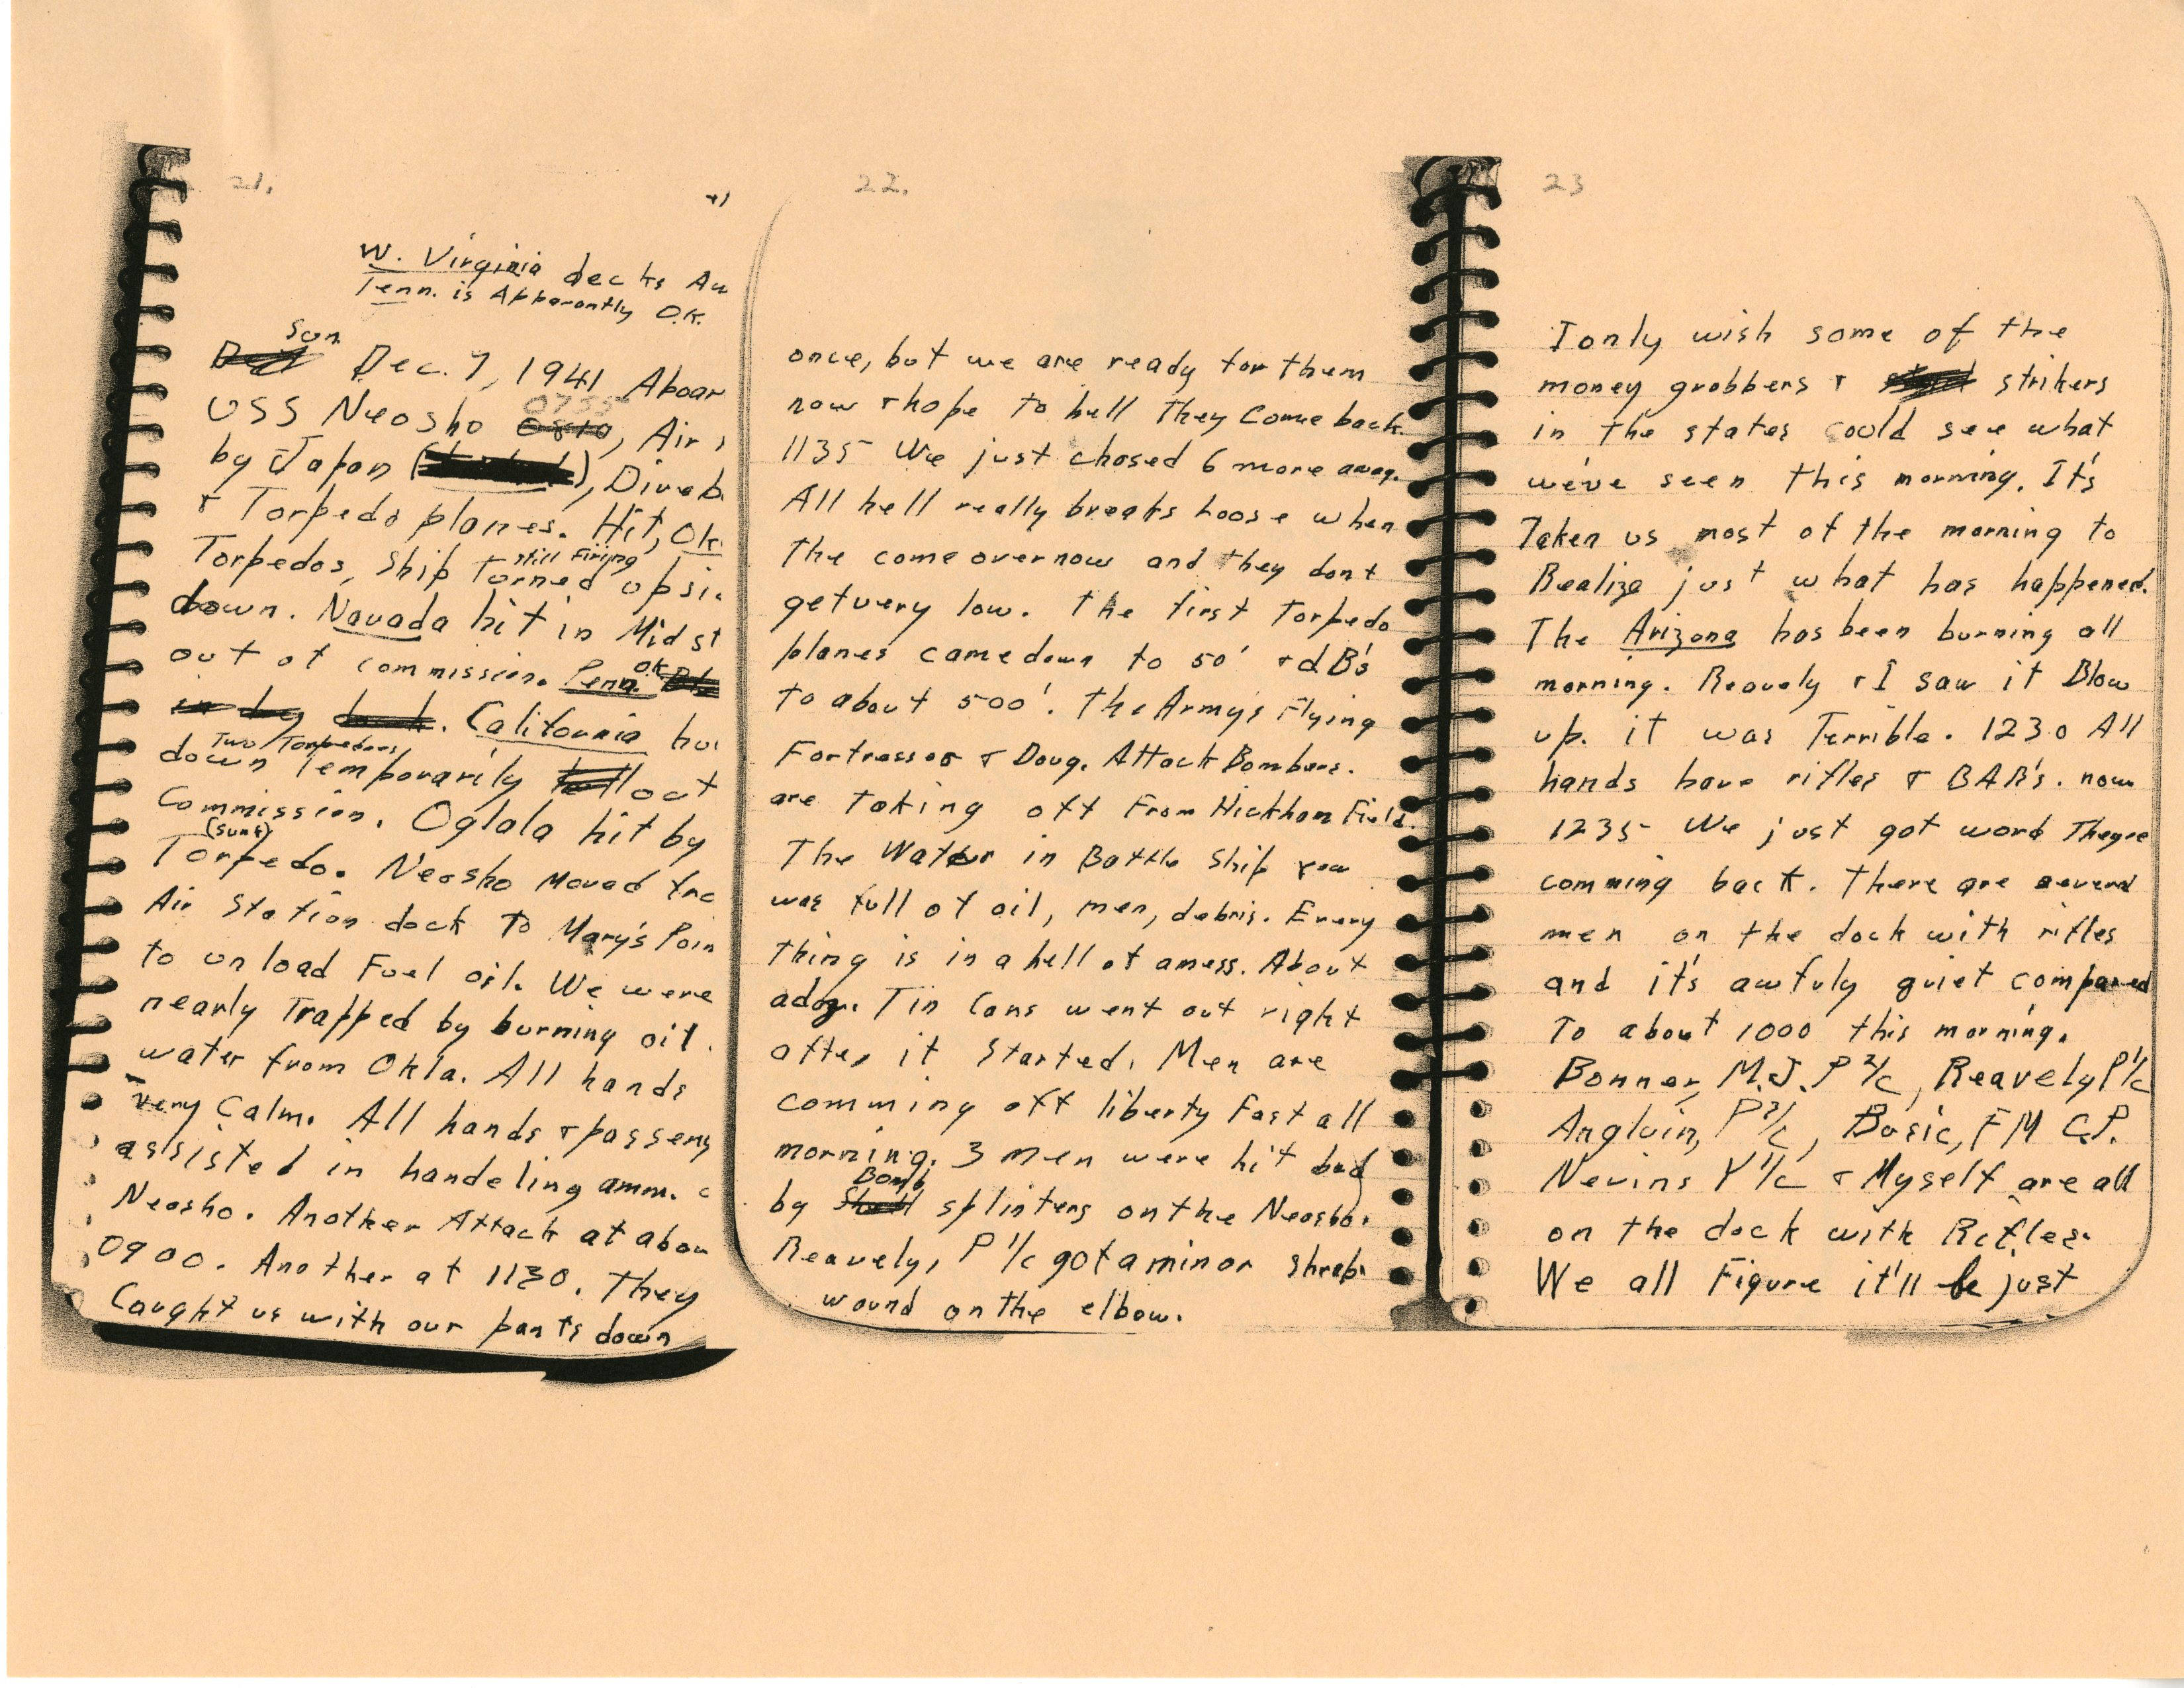 21.
W. Virginia decks Aw
Tenn. is Apparantly O.K.
Sun
Dec. 7, 1941 Aboar
0755
USS Neosho 0810, Air
by Japan (), Diveb
+ Torpedo planes. Hit, Ok
still Firing
Torpedos, Ship Turned upsi
down. Navada hit in Midst
out of commission. Penn. OK
in dry dock. California
Two Torpedoes
down Temporarily out
Commission. Oglala hit by
(sunk)
Torpedo. Neosho Moved fro
Air Station dock To Mary's Poin
to unload Fuel oil. We were
nearly Trapped by burning oil
water from Okla. All hands
very Calm. All hands + passeng
assisted in handeling amm.
Neosho. Another Attack at abou
0900. Another at 1130. They
Caught us with our pants down
22.
once, but we are ready for them
now + hope to hell they Come back.
1135 We just chased 6 more away.
All hell really breaks Loose when
the come over now and they dont
get very low. The first Torpedo
planes came down to 50' + dB's
To about 500'. The Army's Flying
Fortresses + Doug. Attack Bombers.
are Taking off From Hickham Field.
The Water in Battle Ship row
was full of oil, men, debris. Every
thing is in a hell of a mess. About
a doz. Tin Cans went out right
after it Started. Men are
comming off liberty Fast all
morning. 3 Men were hit bad
Bomb
by Shell splinters on the Neosho.
Reavely, P 1/c got a minor shrap.
wound on the elbow.
23
I only wish some of the
money grabbers + strikers
in the states could see what
we've seen this morning. It's
Taken us most of the morning to
Realize just what has happened.
The Arizona has been burning all
morning. Reavely + I saw it Blow
up. it was Terrible. 1230 All
hands have rifles + BAR's. now
1235 We just got word Theyre
comming back. There are several
men on the dock with rifles
and it's awfuly quiet compared
To about 1000 this morning.
Bonner, M.J. P 2/c, Reavely P 1/c
Angluin, P 2/c, Busic, FM C.P.
Nevins Y 1/c + Myself are all
on the dock with Rifles.
We all Figure it'll be just